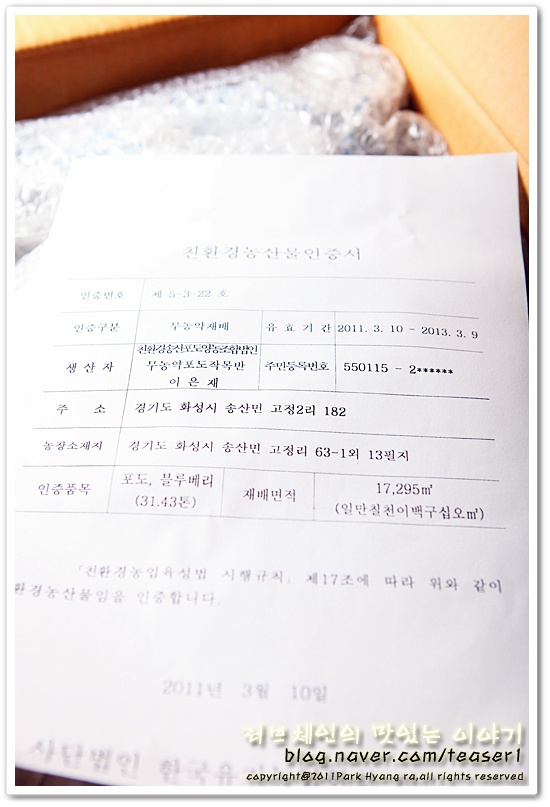 친환경농산물인증서
인증번호 제 5-3-22 호
인증구분 무농약재배 유효기간 2011. 3. 10 - 2013. 3. 9
친환경송산포도영농조합법인
생산자 무농약포도작목반 주민등록번호 550115 - 2******
이은재
주 소 경기도 화성시 송산면 고정2리 182
농장소재지 경기도 화성시 송산면 고정리 63-1외 13필지
인증품목 포도, 블루베리 (31.43톤) 재배면적 17,295㎡ (일만칠천이백구십오㎡)
「친환경농업육성법 시행규칙」 제17조에 따라 위와 같이
환경농산물임을 인증합니다.
2011년 3월 10일
사단법인 한국유기
려브체인의 맛있는 이야기
blog.naver.com/teaser1
copyright@2011Park Hyang ra,all rights reserved